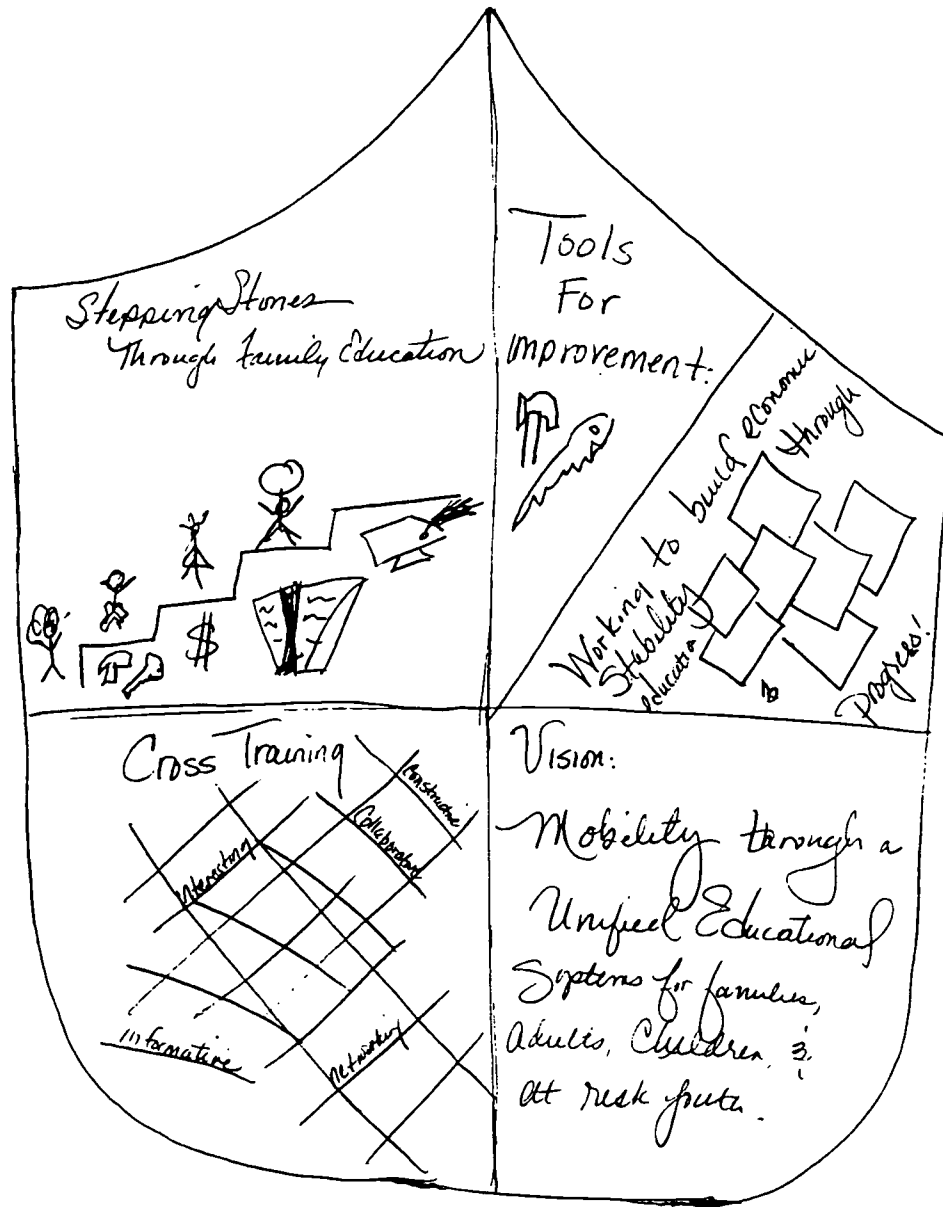 Stepping Stones
Through Family Education
$
Tools
For
Improvement:
Working to build economic
Stability through
education &
Progress!
Cross Training
Constructive
Collaborative
Interesting
Informative
Networking
Vision:
Mobility through a
Unified Educational
Systems for families,
Adults, Children, &
At risk youth.